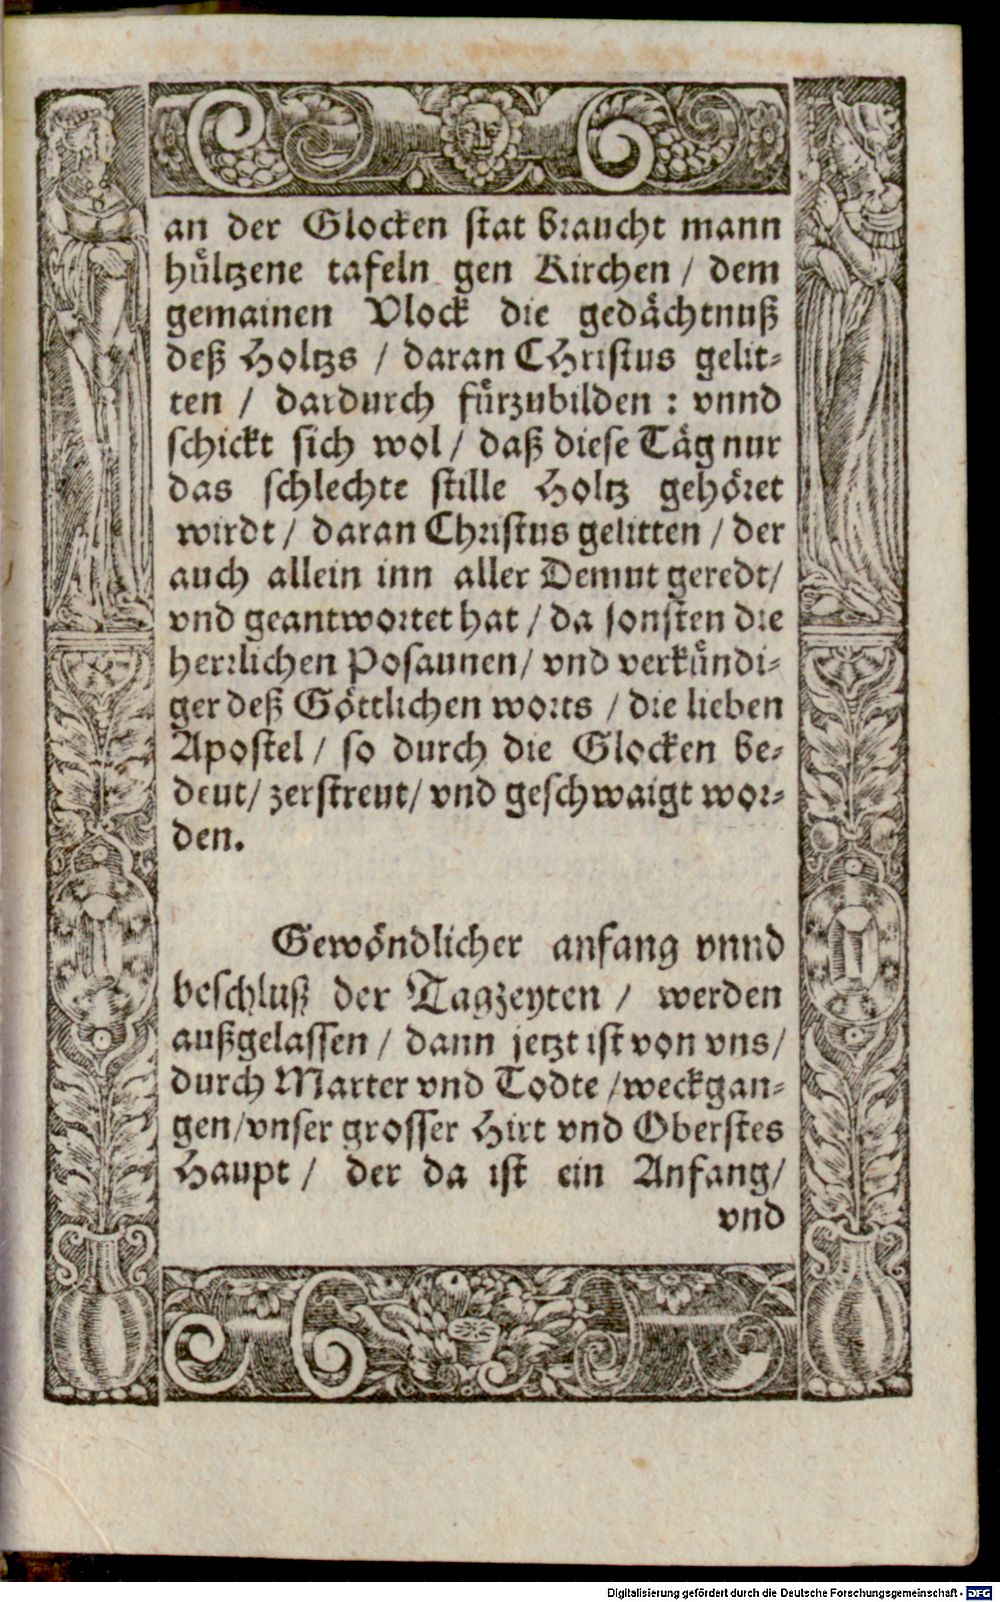 an der Glocken stat braucht mann
huͤltzene tafeln gen Kirchen / dem
gemainen Vlock die gedaͤchtnuß
deß Holtzs / daran CHristus gelit⸗
ten / dardurch fuͤrzubilden : vnnd
schickt sich wol / daß diese Taͤg nur
das schlechte stille Holtz gehoͤret
wirdt / daran Christus gelitten / der
auch allein inn aller Demut geredt/
vnd geantwortet hat / da sonsten die
herrlichen Posaunen/ vnd verkuͤndi⸗
ger deß Goͤttlichen worts / die lieben
Apostel / so durch die Glocken be⸗
deut/ zerstreut/ vnd geschwaigt wor⸗
den.
Gewoͤndlicher anfang vnnd
beschluß der Tagzeyten / werden
außgelassen / dann jetzt ist von vns/
durch Marter vnd Todte /weckgan⸗
gen/vnser grosser Hirt vnd Oberstes
Haupt / der da ist ein Anfang/
vnd
Digitalisierung gefördert durch die Deutsche Forschungsgemeinschaft - DFG